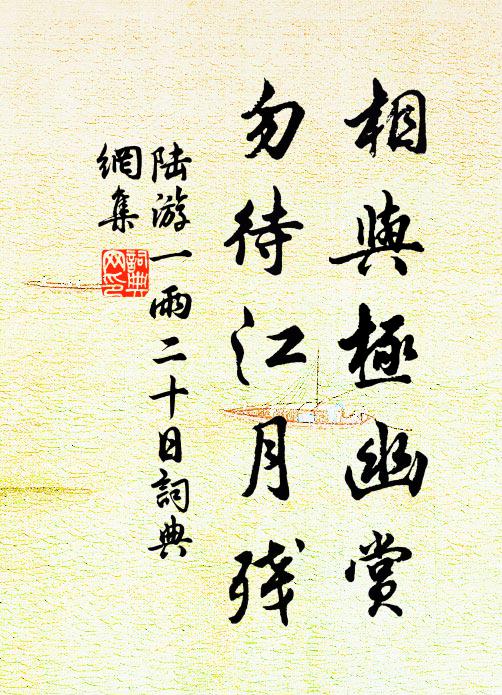 相與極幽賞
勿待江月殘
陸游一雨二十日詞典
網集
詞典
网印